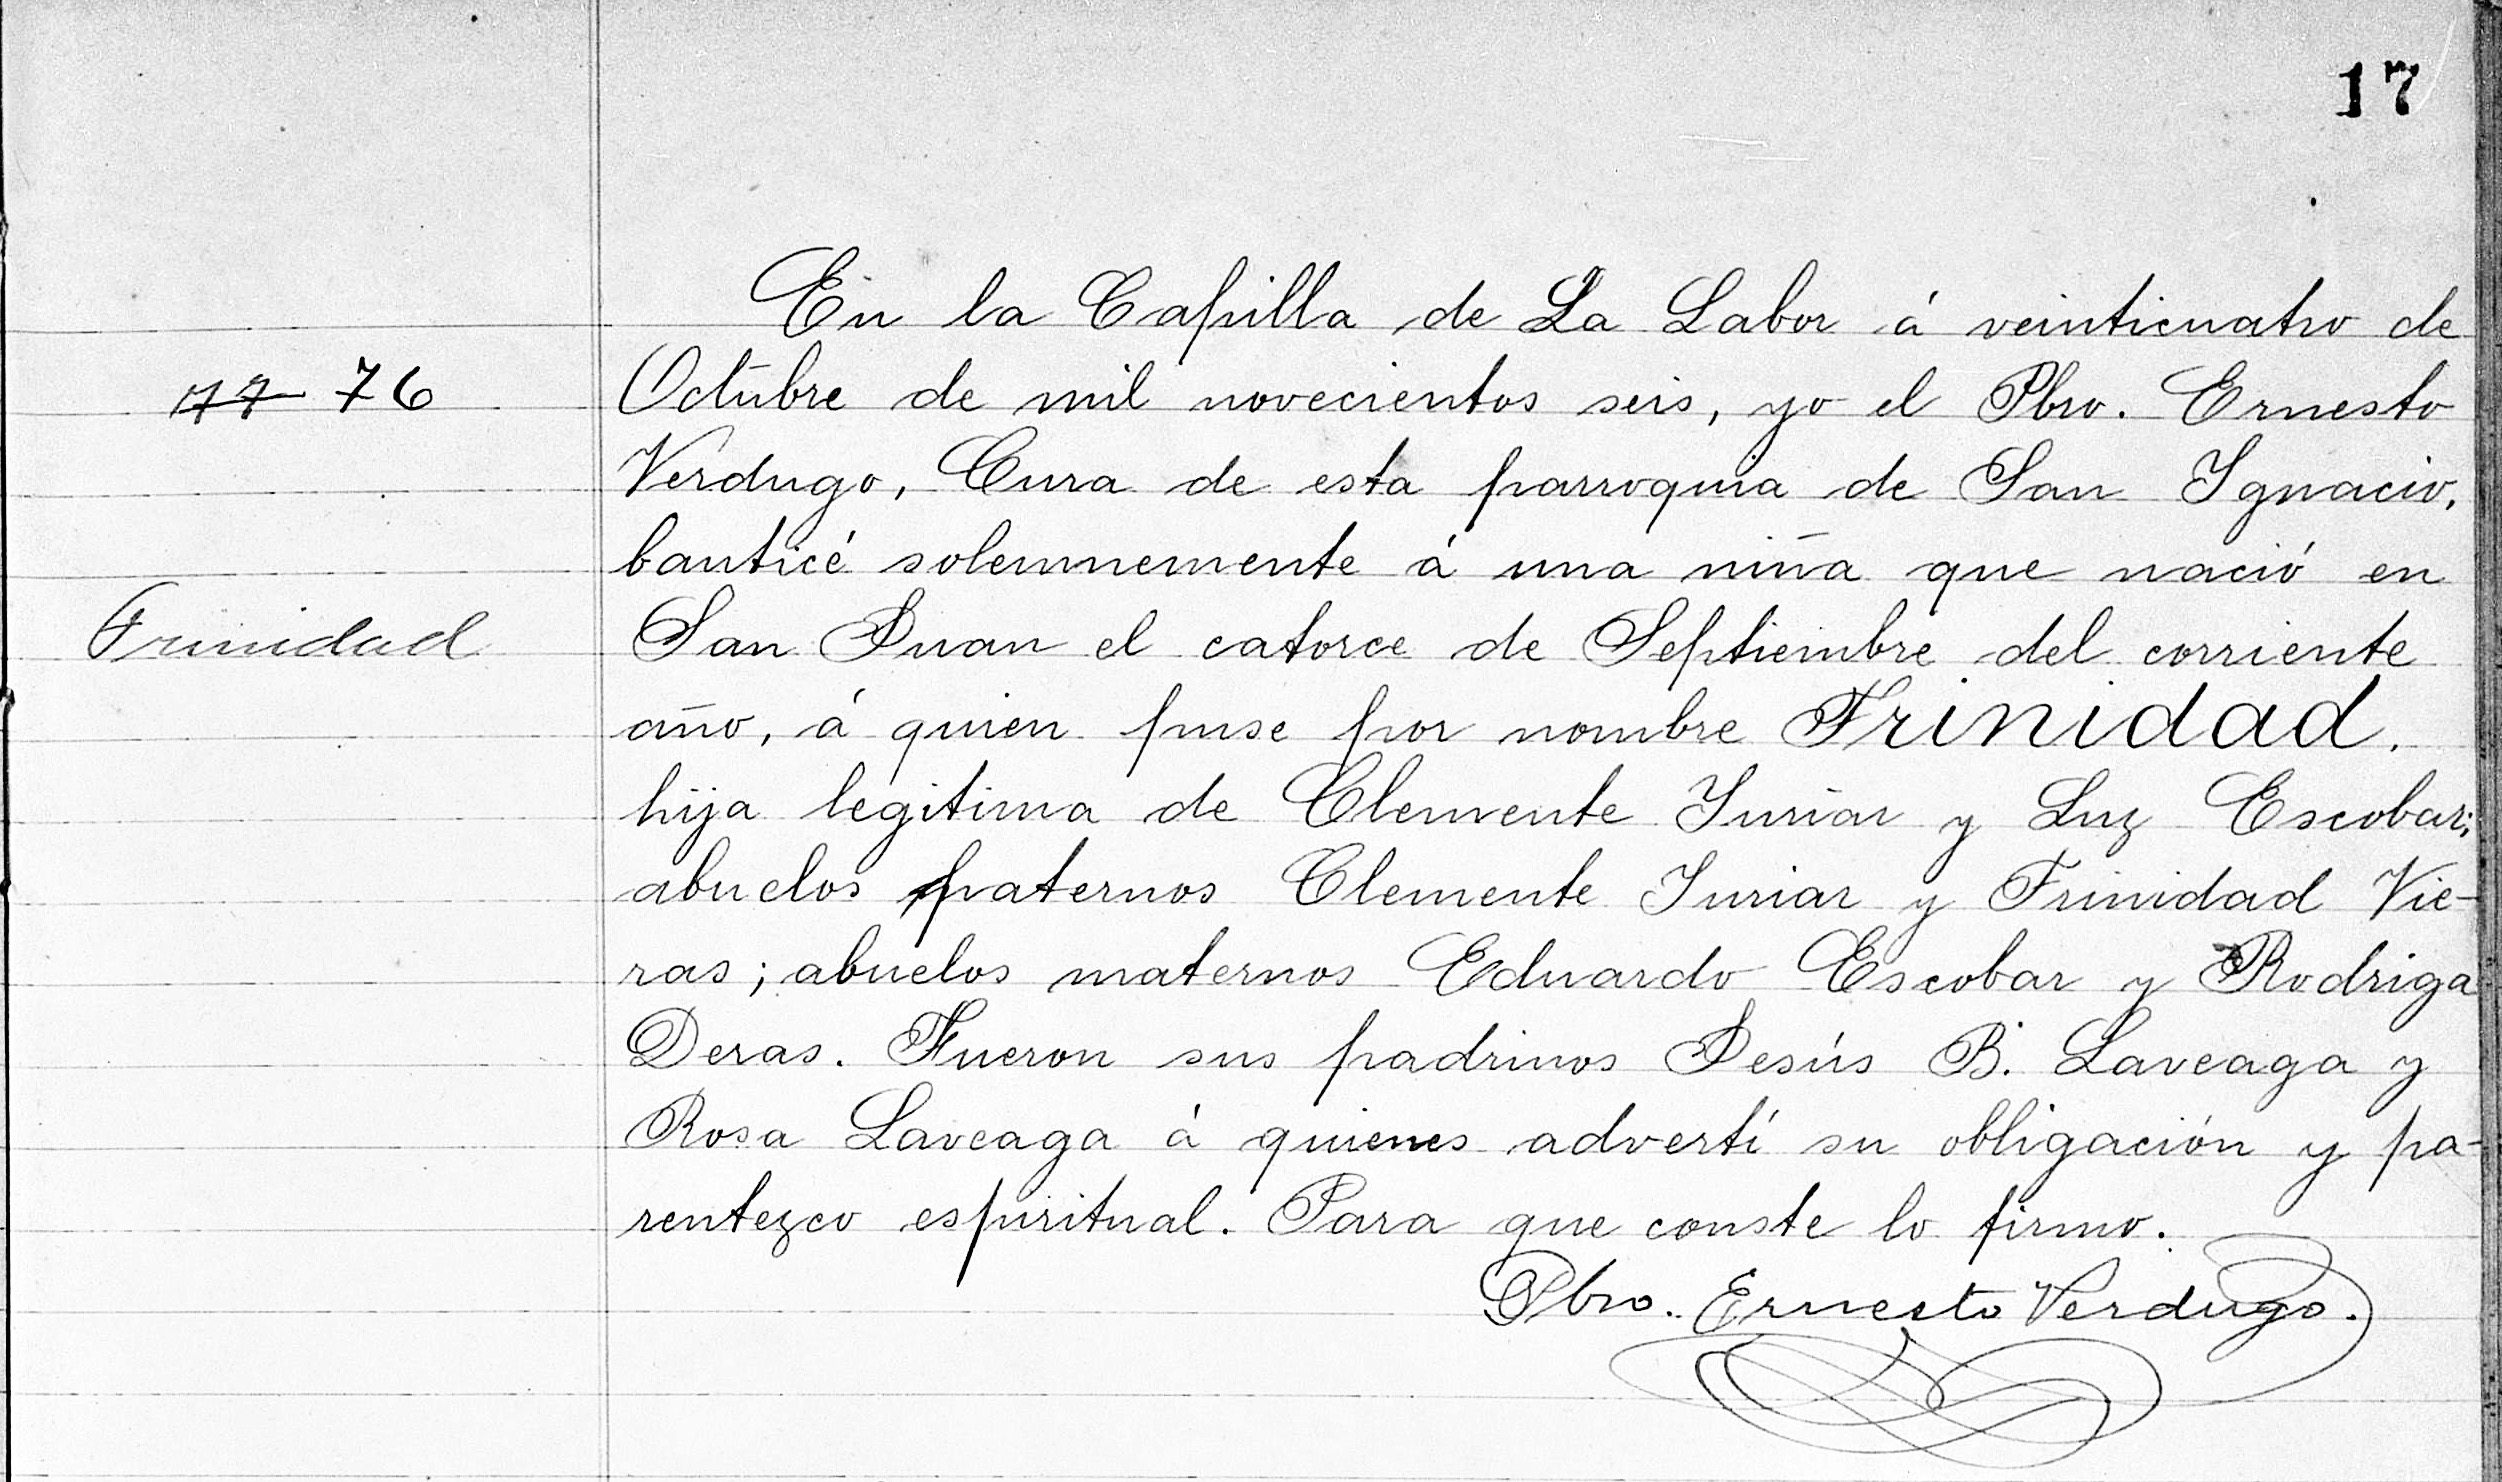 17
En la Capilla de La Labor á veinticuatro de
77 76
Octubre de mil novecientos seis, yo el Pbro. Ernesto
Verdugo, Cura de esta parroquia de San Ygnacio,
bauticé solemnemente á una niña que nació en
Trinidad
San Juan el catorce de Septiembre del corriente
año, á quien puse por nombre Trinidad,
hija legitima de Clemente Yuriar y Luz Escobar;
abuelos paternos Clemente Yuriar y Trinidad Vie-
ras; abuelos maternos Eduardo Escobar y Rodriga
Deras. Fueron sus padrinos Jesús B. Laveaga y
Rosa Laveaga á quienes advertí su obligación y pa-
rentezco espiritual. Para que conste lo firmo.
Pbro. Ernesto Verdugo.